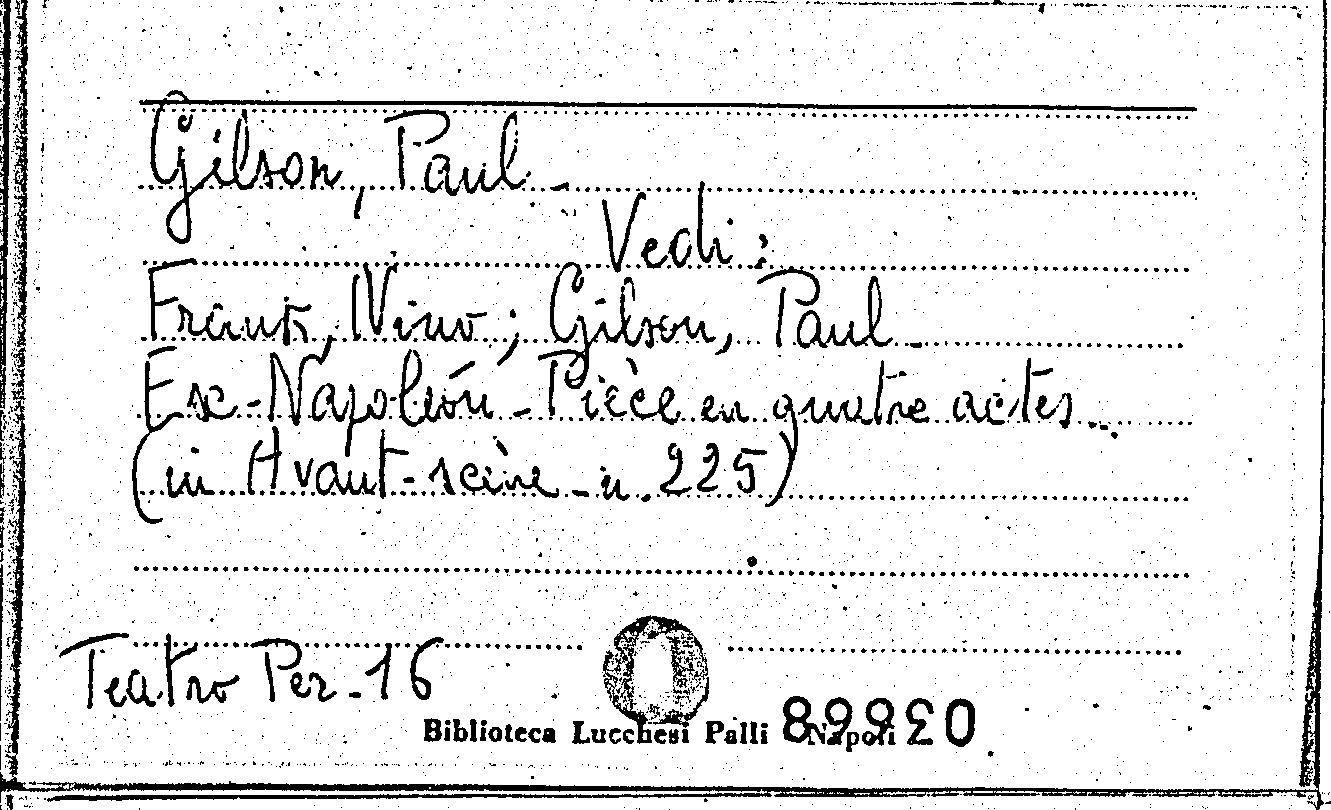 Gilson, Paul -
Vedi:
Frank, Nino; Gilson, Paul -
Ex-Napoléon - Pièce en quatre actes...
(in Avant-scène - n. 225)
Teatro Per - 16
Biblioteca Lucchesi Palli Napoli